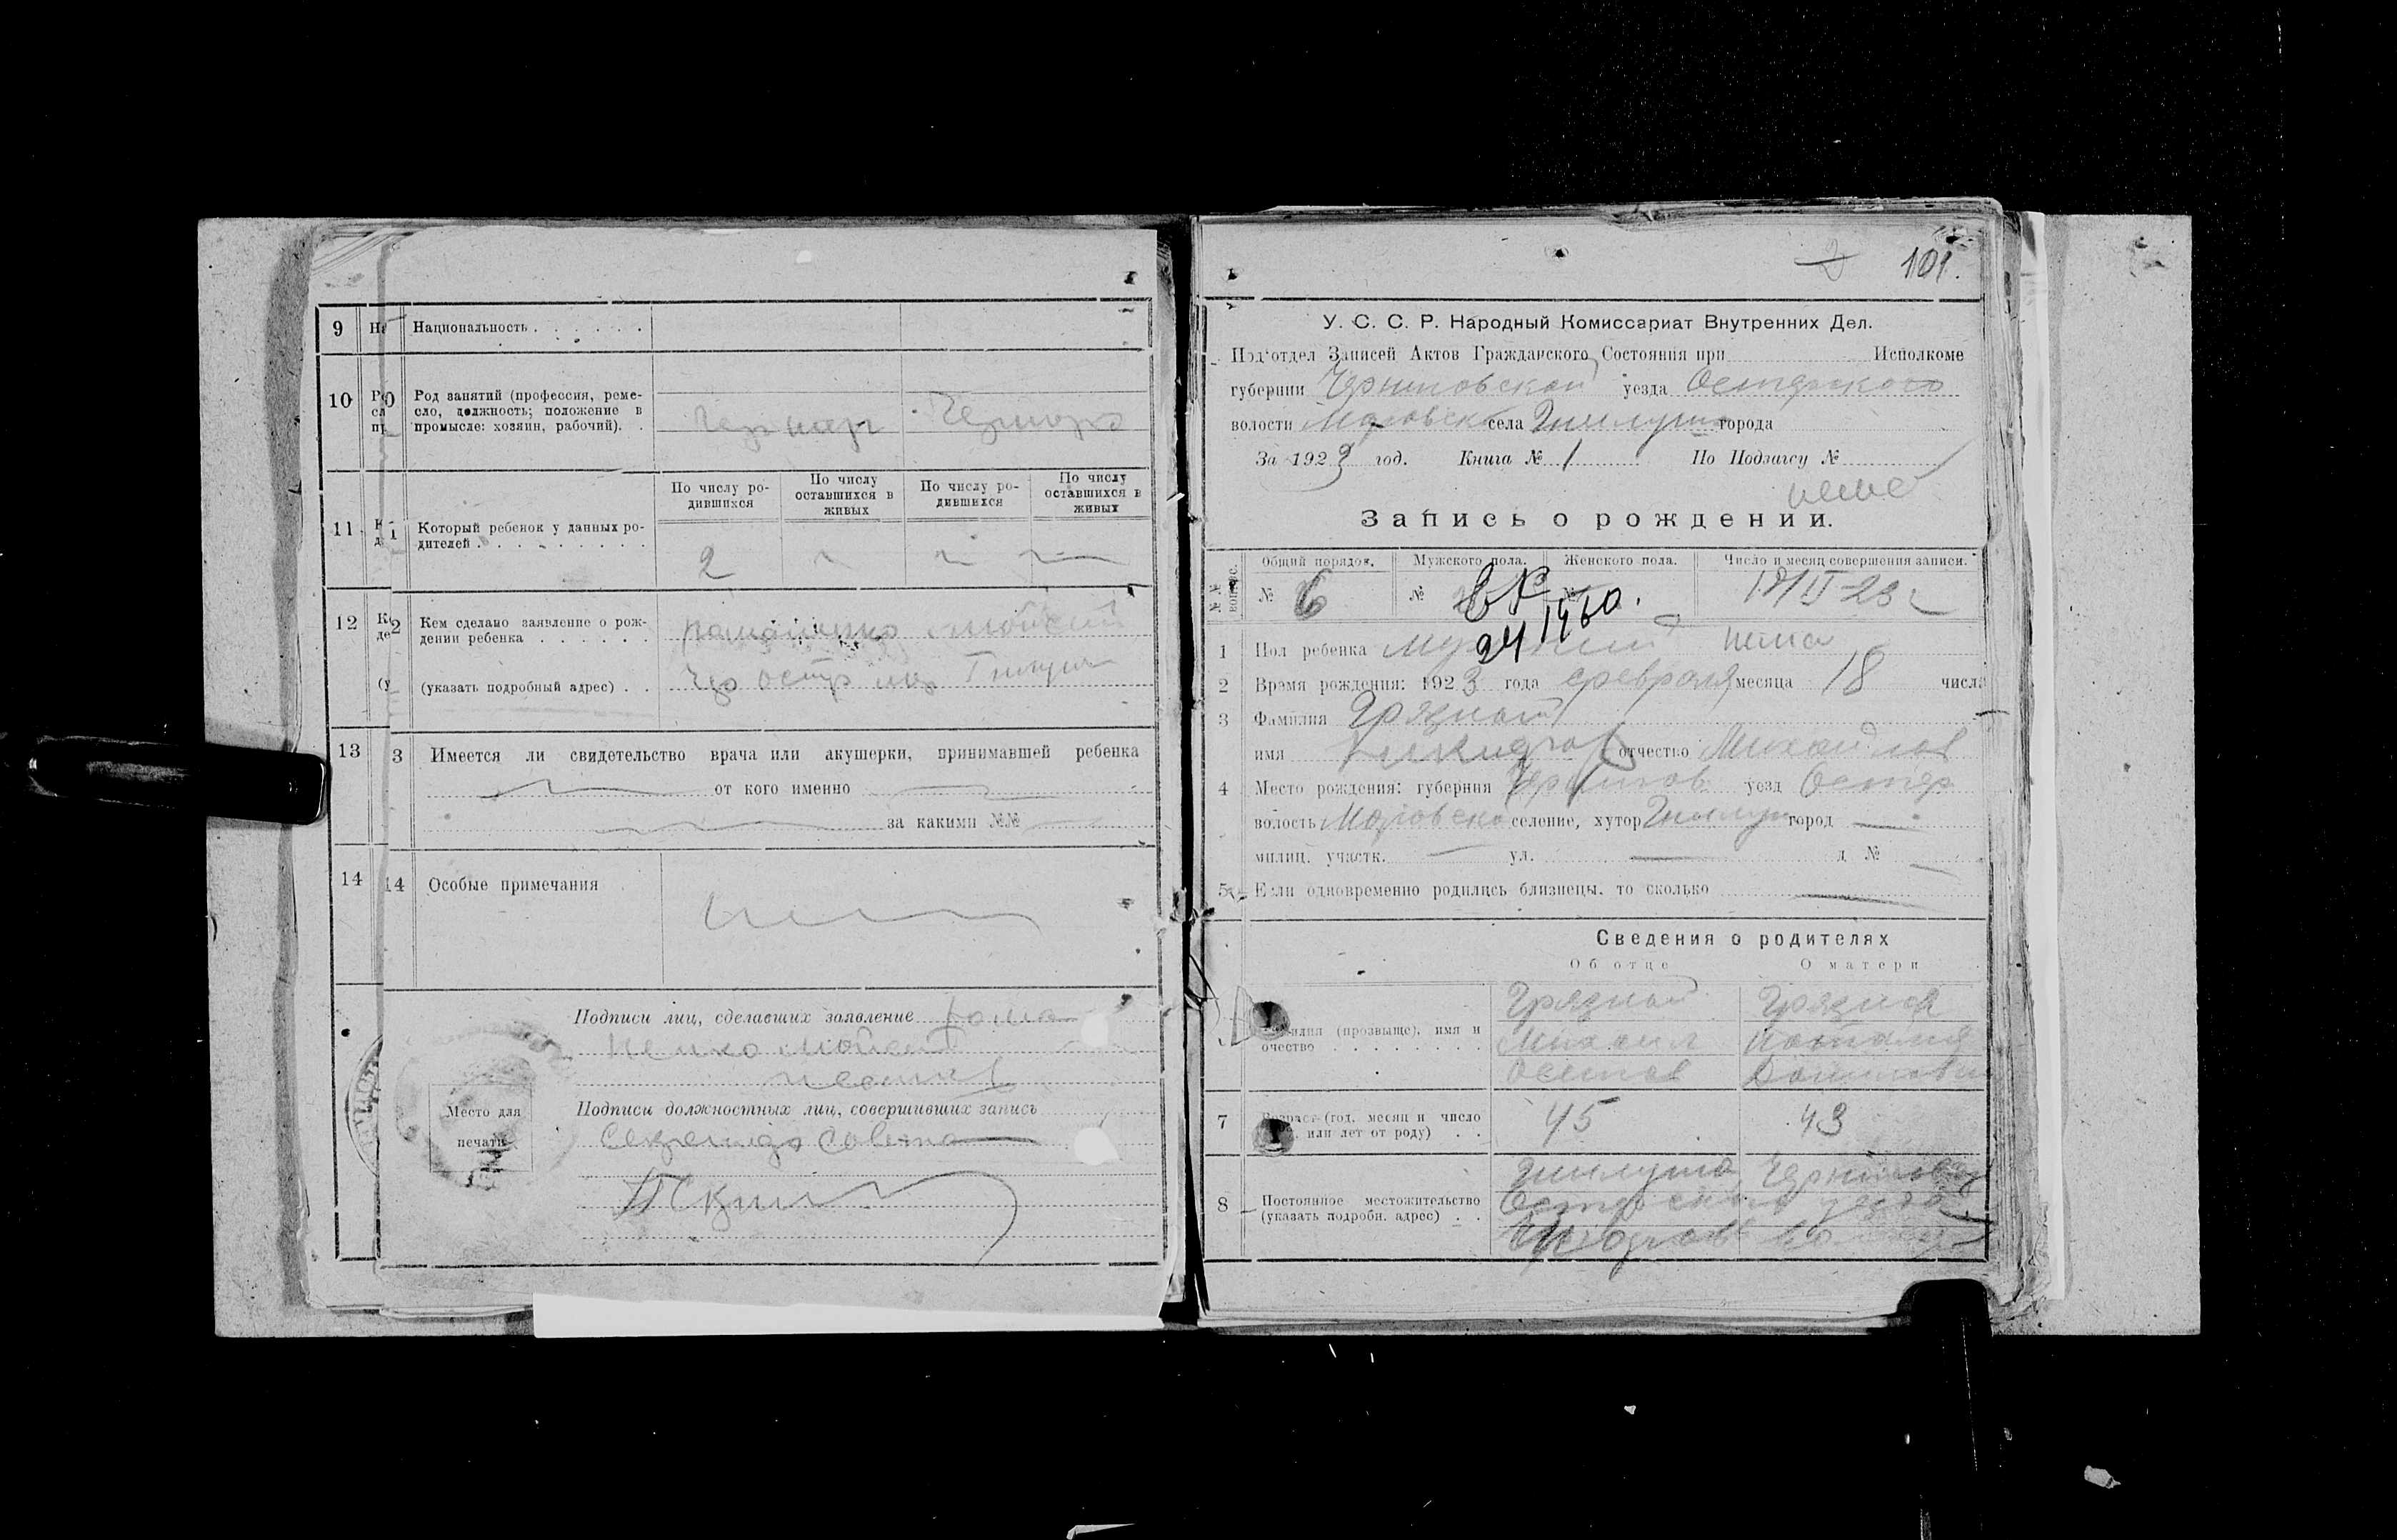 9 Национальность . . . . . .
10 Род занятий (профессия, реме-
сло, должность; положение в
промысле: хозяин, рабочий). .
По числу ро-
дившихся
По числу
оставшихся в
живых
По числу ро-
дившихся
По числу
оставшихся в
живых
11 Который ребенок у данных ро-
дителей . . . . . . . . . .
2
12 Кем сделано заявление о рож-
дении ребенка . . . . . .
(указать подробный адрес) . .
13 3 Имеется ли свидетельство врача или акушерки, принимавшей ребенка
от кого именно
за какими №№
14 14 Особые примечания
Подписи лиц, сделавших заявление Рома
ненко Мойсей
Место для
печати
Подписи должностных лиц, совершивших запись
Секретарь Совета
101.
У. С. С. Р. Народный Комиссариат Внутренних Дел.
Под'отдел Записей Актов Гражданского Состояния при Исполкоме
губернии Черниговской уезда Остерского
волости Моровск села Гнилуша города
За 1923 год. Книга № 1 По Подзагсу №
нема
Запись о рождении.
№№ вопрос.
Общий порядок.
Мужского пола.
Женского пола.
Число и месяц совершения записи.
№ 6 №
24 1960.
1 Пол ребенка нема
2 Время рождения: 1923 года февраля месяца 18 числа
3 Фамилия Грязной
имя отчество Михайлов
4 Место рождения: губерния Чернигов уезд Остер
волость Моровско селение, хутор Гнилуша город —
милиц. участк. — ул. — д № —
5 Если одновременно родились близнецы, то сколько
Сведения о родителях
Об отце
О матери
Фамилия (прозвище), имя и
очество . . . . . . . .
Грязной
Михаил
Осипов
Грязная
Наталия
7 Возраст (год, месяц и число
или лет от роду) . .
45
43
8 Постоянное местожительство
(указать подробн. адрес) . .
Гнилуша Чернигов
Остерский уезда